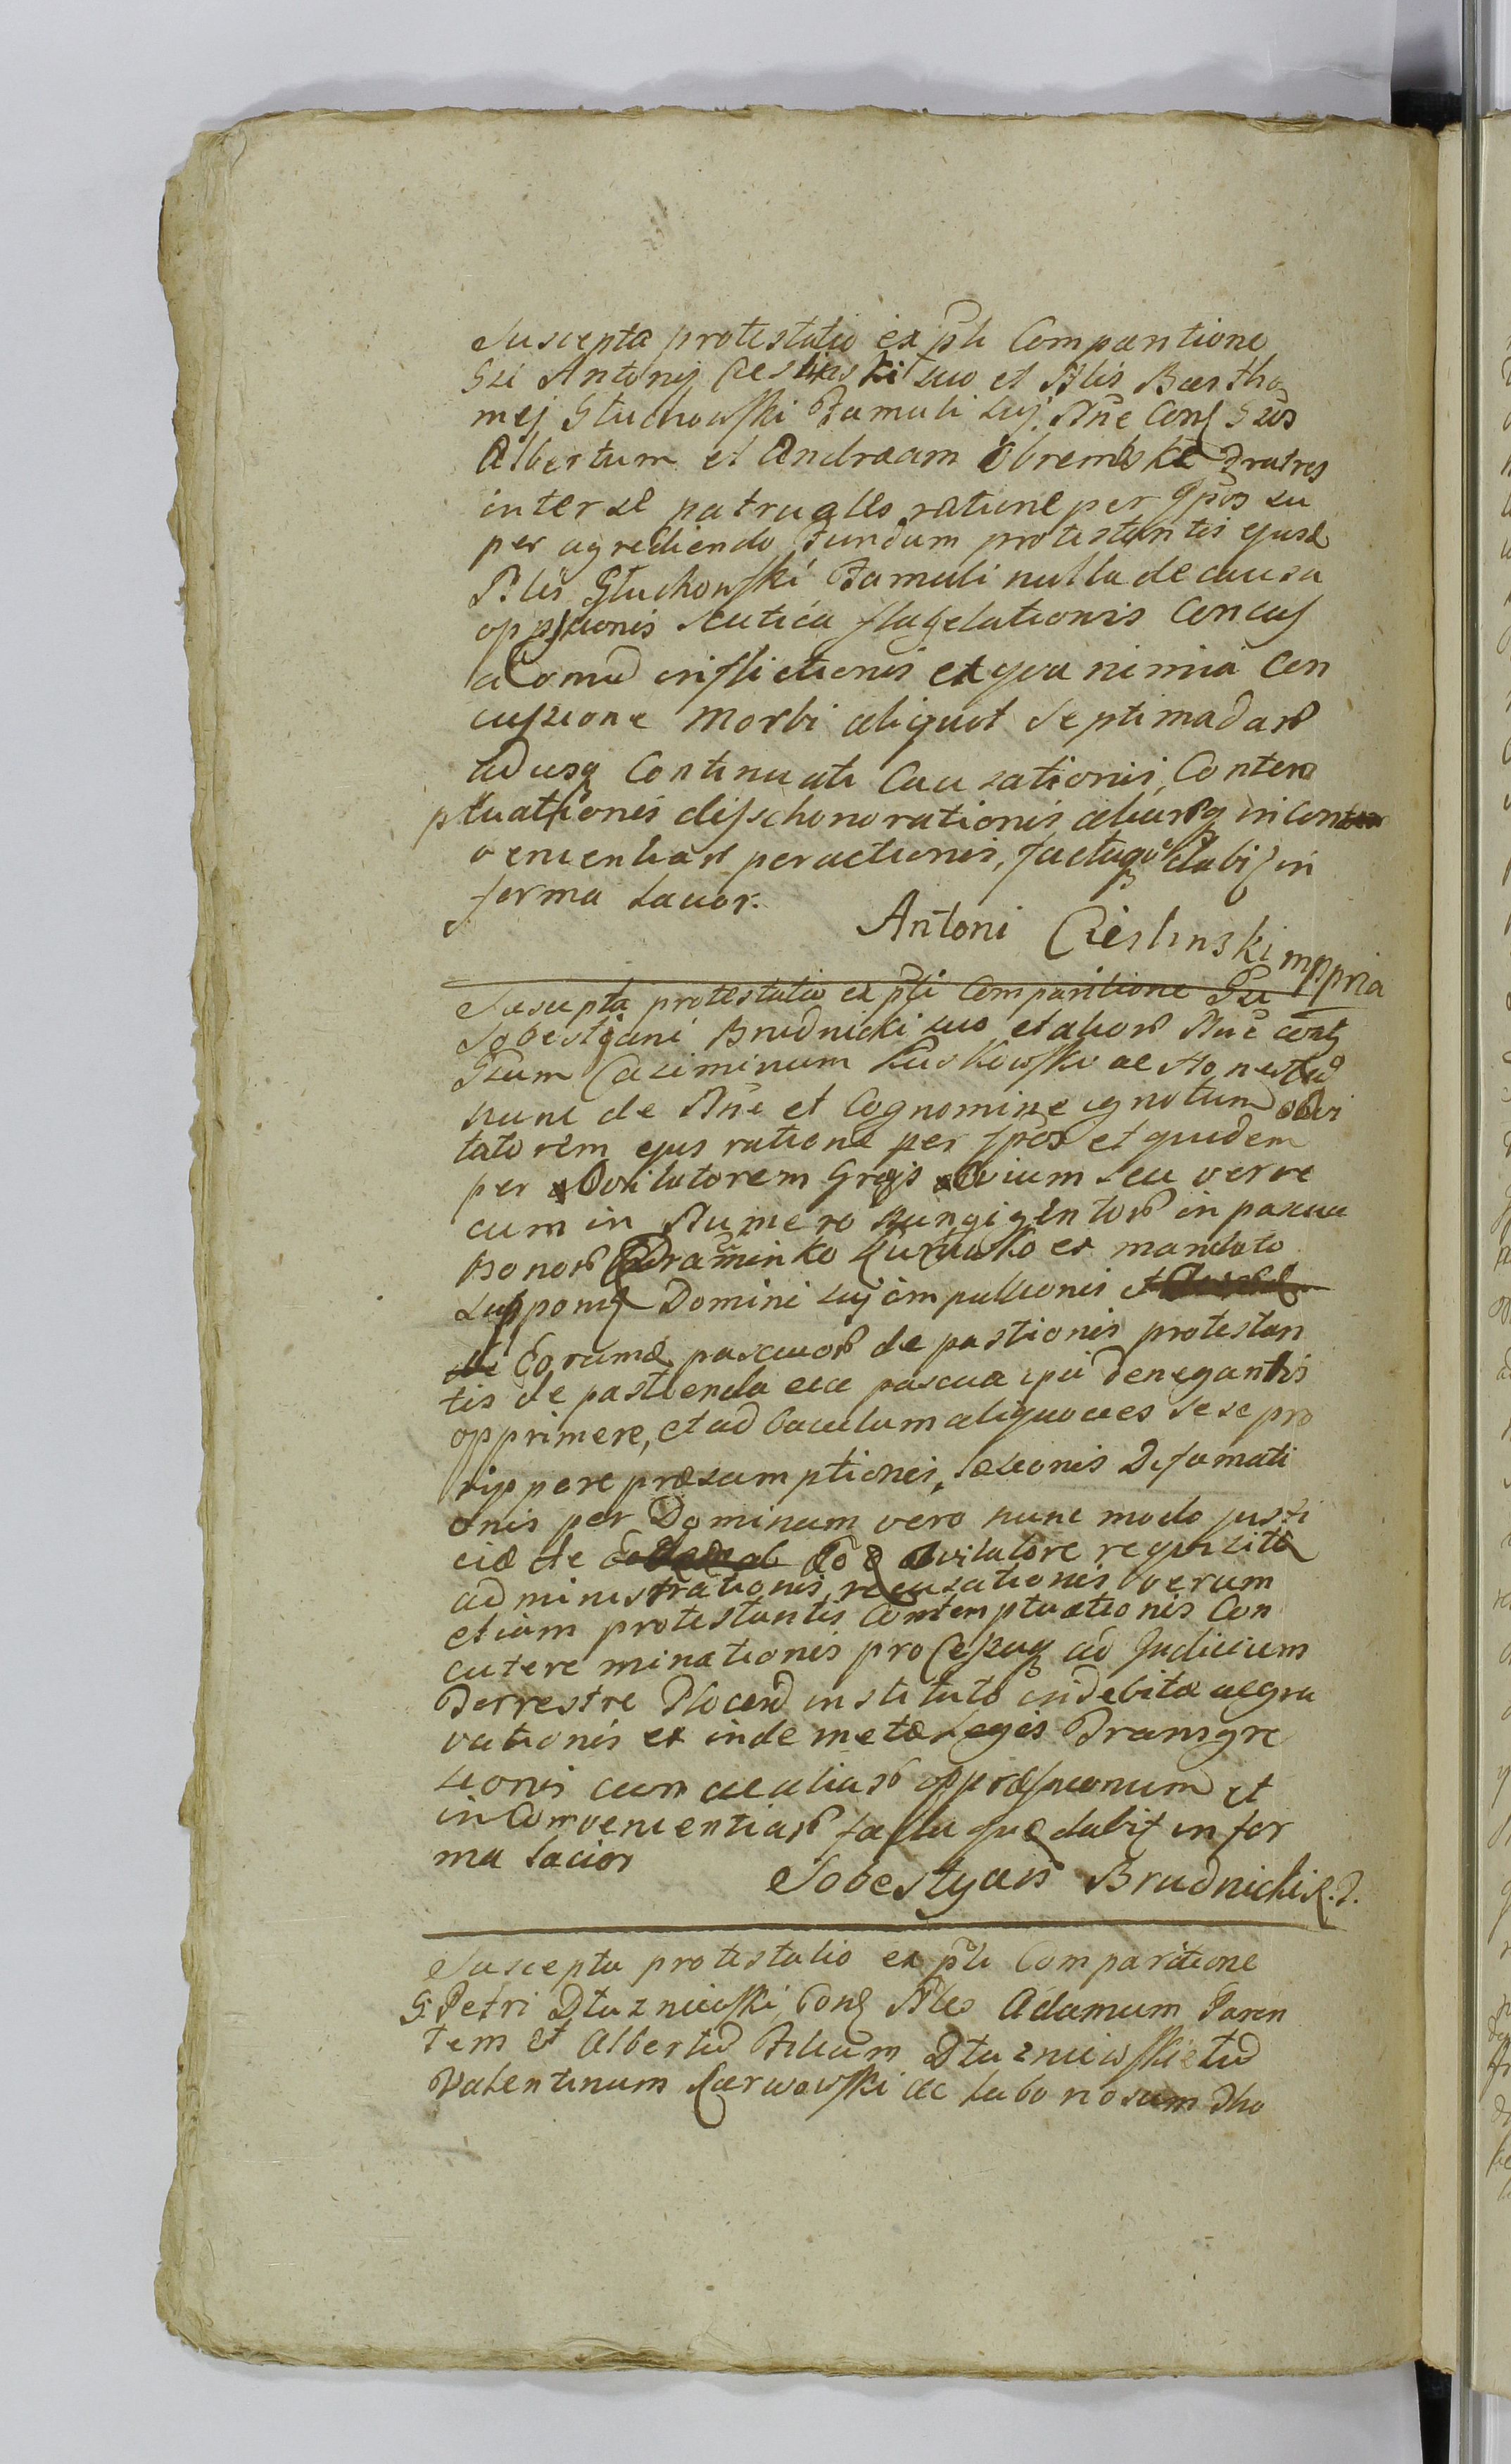 Suscepta protestatio ex pñti Comparitione
Gsi Antonij Cieslinski suo et Nblis Bartho
mej Głuchowski Famuli sui Nñe Cong Gsos
Albertum et Andream Obrembskie Fratres
inter se patrueles ratione per Ipsos su
per agrediendo Fundum protestantis ejusd
Nblis Głuchowski Famuli nulla de causa
oppssionis scutica flagelationis Concus
inflictionis ex qva nimia Con
cussione Morbi aliquot Septimadarum
adusq Continuati Causationis, Contem
ptuationis disshonorationis aliarumq incon
venientiarum peractionis, factaq dabis in
forma lauor.
Antoni Cieslinski mppria
Suscepta protestatio ex pñti Comparitione Gsi
Sobestyani Brudnicki suo et aliorum Nñe cong
Gsum Casimirum Luskowski ac Honestum
nunc de Nñe et Cognomine ignotum ovi
latorem ejus ratione per Ipsos et quidem
per Ovilatorem Gregis Ovium seu verve
cum in Numero Nungigentorum in pascua
Bonorum Draminko ex mandato
Domini sui impulsionis
Eorumd pascuorum depastionis protestan
tis depastienda ea pascua ipsi denegantis
opprimere, et ad baculum aliquoties sese pro
rippere præsumptionis, læsionis Defamati
onis per Dominum vero nunc modo justi
ciæ de Eod Ovilatore requisitæ
administrationis, recusationis verum
etiam protestantis Contemptuationis Con
cutere minationis processuq ad Judicium
Terrestre Plocen instituto indebitæ aegra
vationis ex inde metæ legis Transgre
sionis cum aliarum oppræssionum et
inconvenientiarum factu quæ dabis in for
ma lacior
Sobestyan Brudnicki R.P.
Suscepta protestatio ex pñti Comparitione
G: Petri Dłuzniewski, Cong Nbles Adamum Paren
tem et Albertum Filium Dłuzniewskie tum
Valentinum Karwowski ac laboriosum Tho